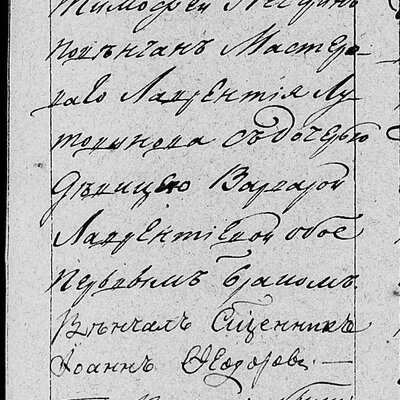 Тимофей
повѣнчанъ Мастеро-
ваго Лаврентія Лу-
тохинова съ дочерью
дѣвицею Варварой
Лаврентіевой обое
первымъ бракомъ.
Вѣнчалъ Сщенникъ
Іоаннъ Ѳедоровъ. —